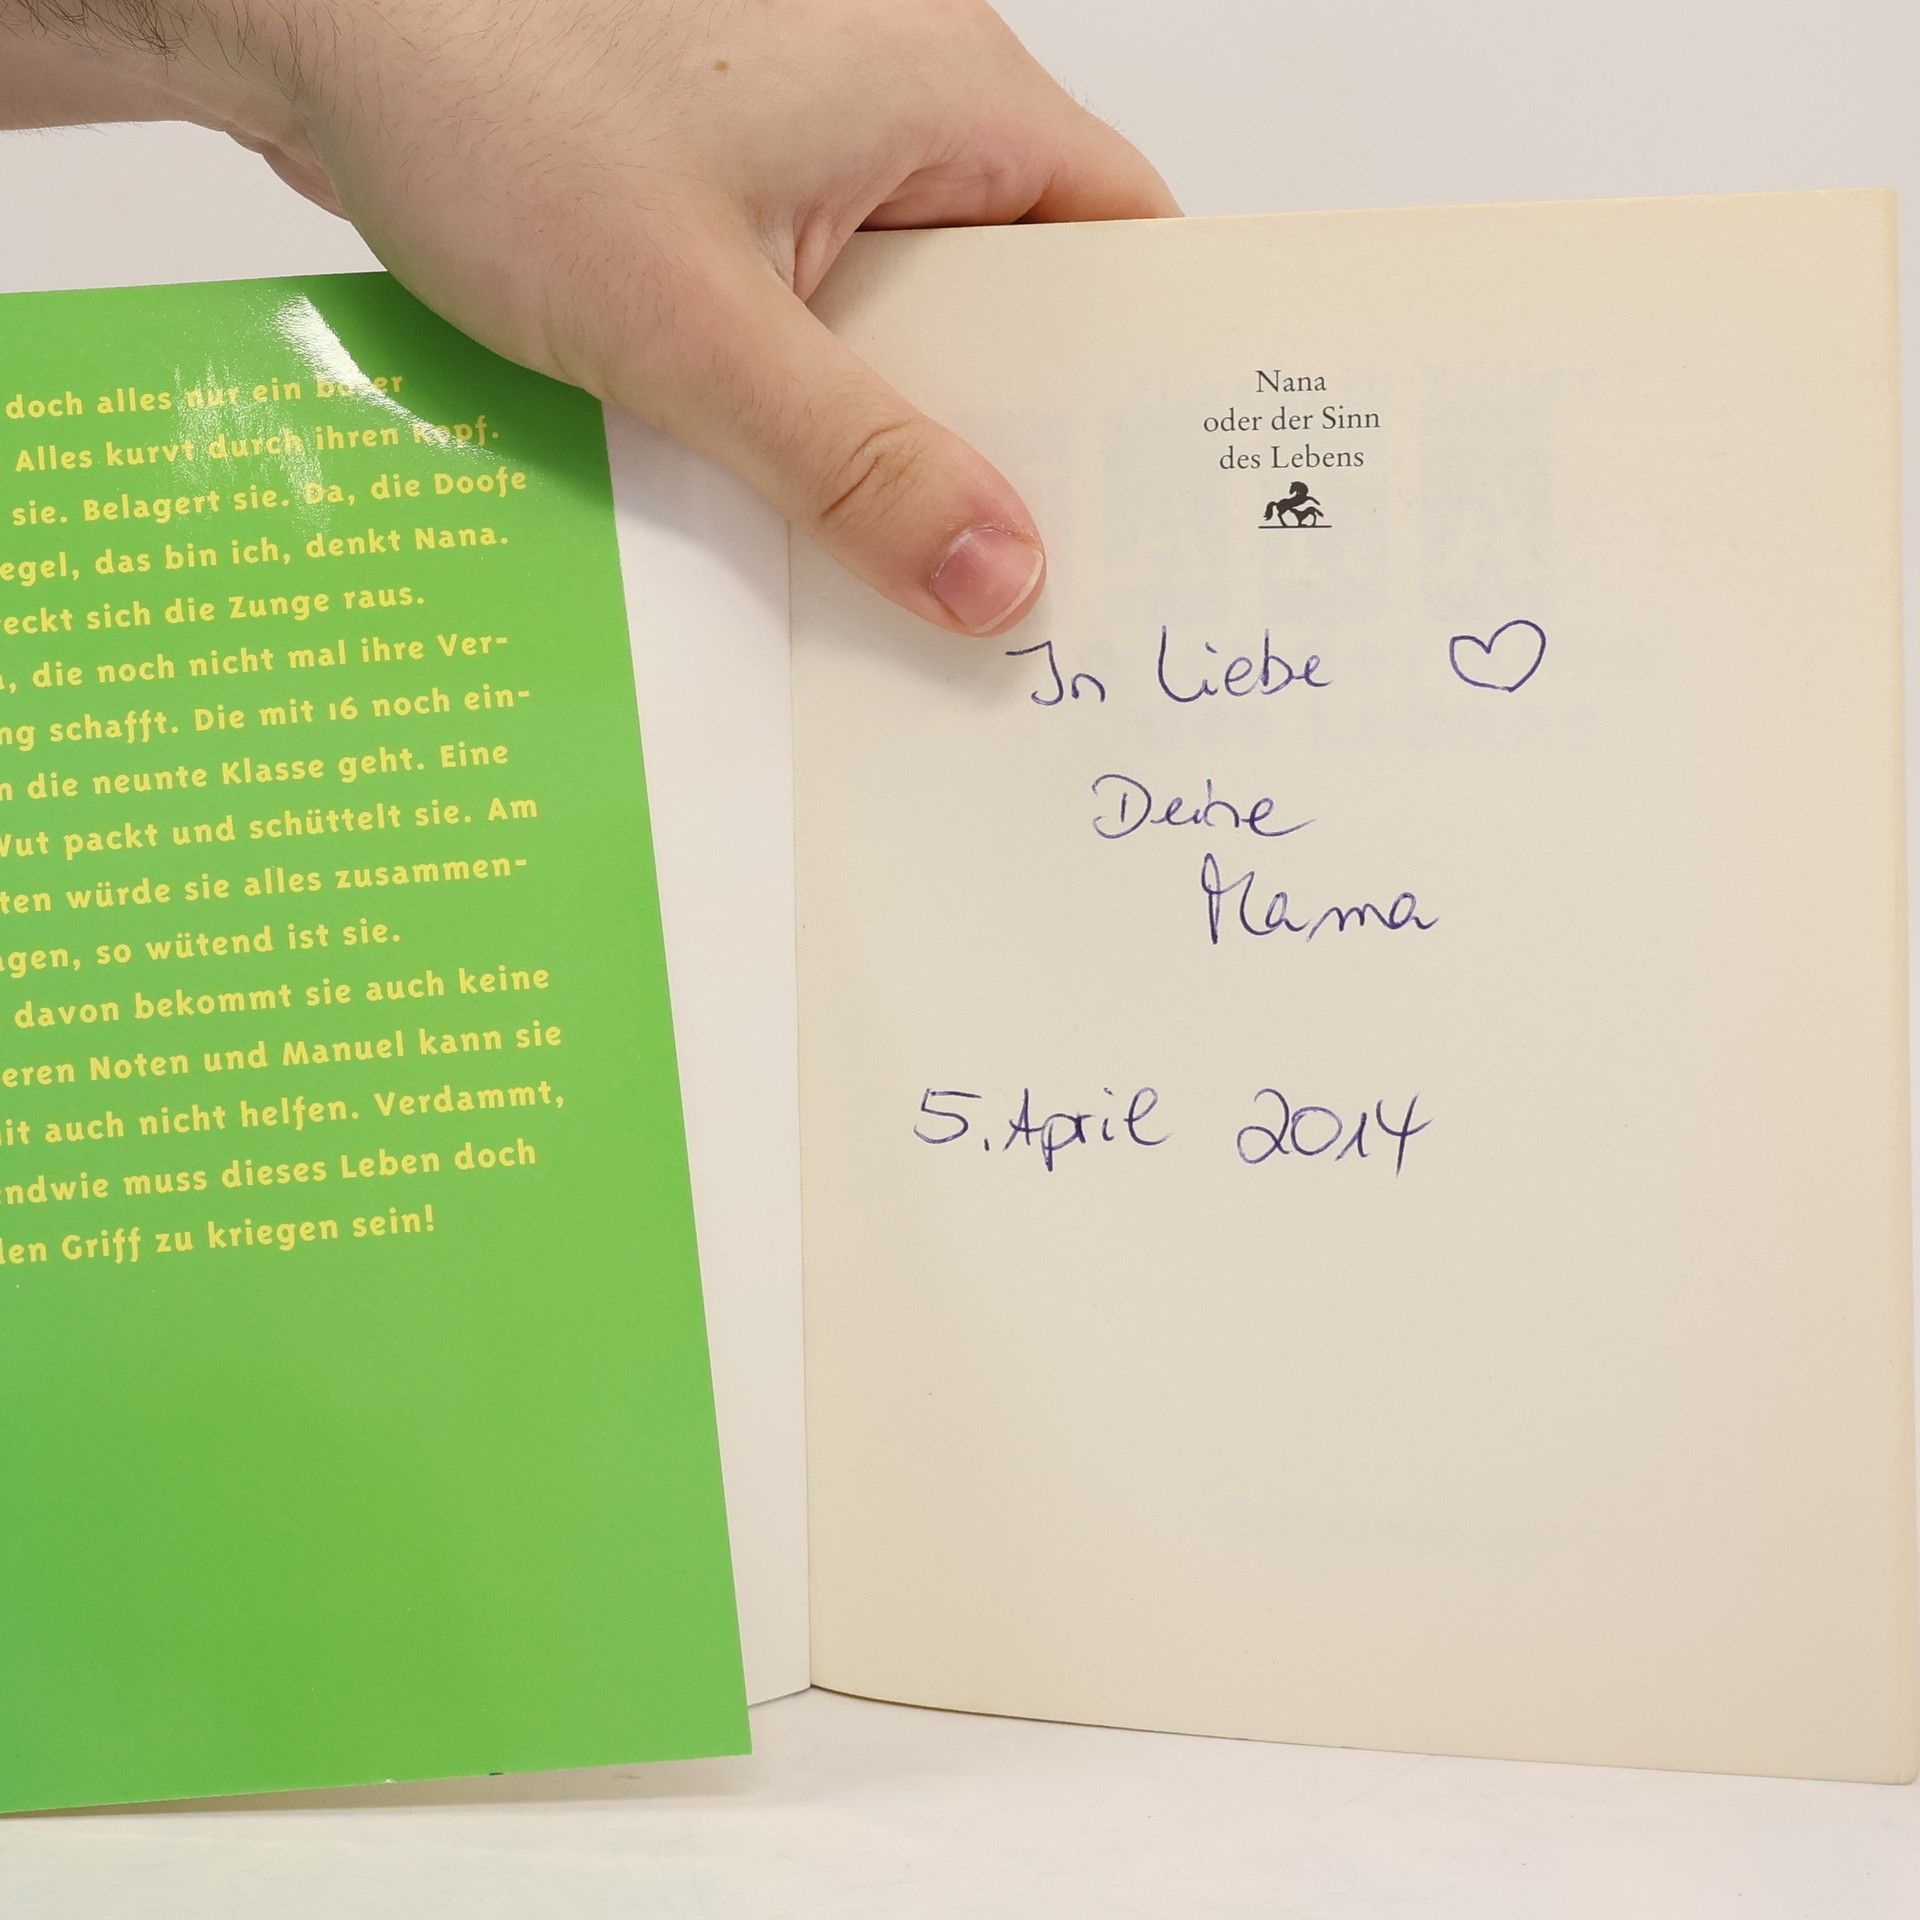 doch alles nur ein böser
Alles kurvt durch ihren Kopf.
sie. Belagert sie. Da, die Doofe
egel, das bin ich, denkt Nana.
eckt sich die Zunge raus.
, die noch nicht mal ihre Ver-
ng schafft. Die mit 16 noch ein-
n die neunte Klasse geht. Eine
Wut packt und schüttelt sie. Am
ten würde sie alles zusammen-
agen, so wütend ist sie.
davon bekommt sie auch keine
eren Noten und Manuel kann sie
it auch nicht helfen. Verdammt,
endwie muss dieses Leben doch
den Griff zu kriegen sein!
Nana
oder der Sinn
des Lebens
In Liebe ♡
Deine
Mama
5. April 2014